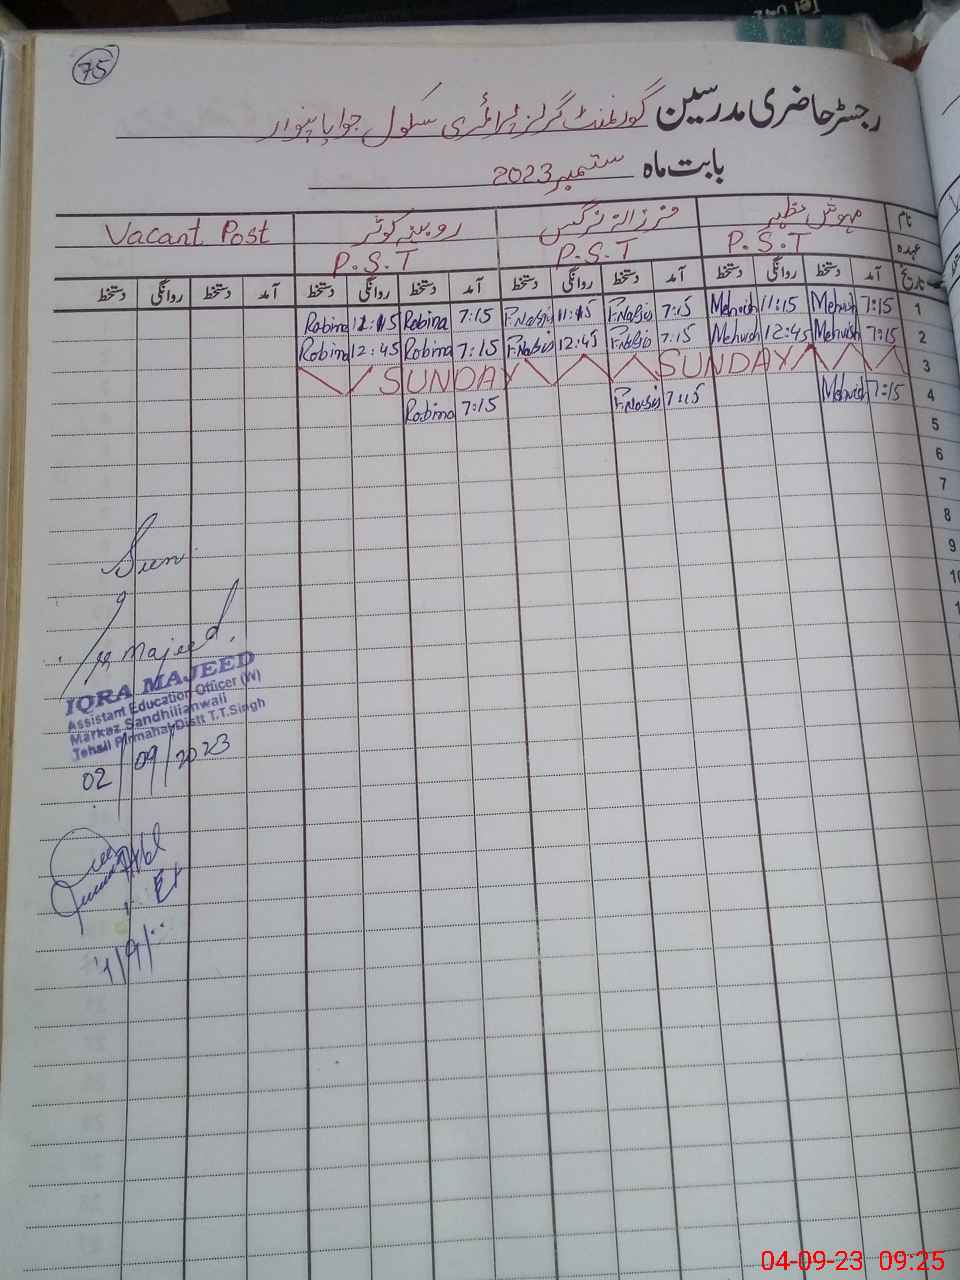 75
رجسٹر حاضری مدرسین گورنمنٹ گرلز پرائمری سکول
بابت ماہ ستمبر 2023
نام مہوش فرزانہ نرگس روبینہ کوثر Vacant Post
عہدہ P.S.T P.S.T P.S.T
تاریخ آمد دستخط روانگی دستخط آمد دستخط روانگی دستخط آمد دستخط روانگی دستخط آمد دستخط روانگی دستخط
1 7:15 Mehwish 11:15 Mehwish 7:15 F.Nargis 11:15 F.Nargis 7:15 Robina Robina
2 7:15 Mehwish 12:45 Mehwish 7:15 F.Nargis 12:45 F.Nargis 7:15 Robina 12:45 Robina
3 SUNDAY SUNDAY
4 7:15 Mehwish 7:15 F.Nargis 7:15 Robina
5
6
7
8
9
10
Majeed
IQRA MAJEED
Assistant Education Officer (W)
Markaz Sandhilianwali
Tehsil Pirmahal Distt T.T.Singh
02/09/2023
04-09-23 09:25